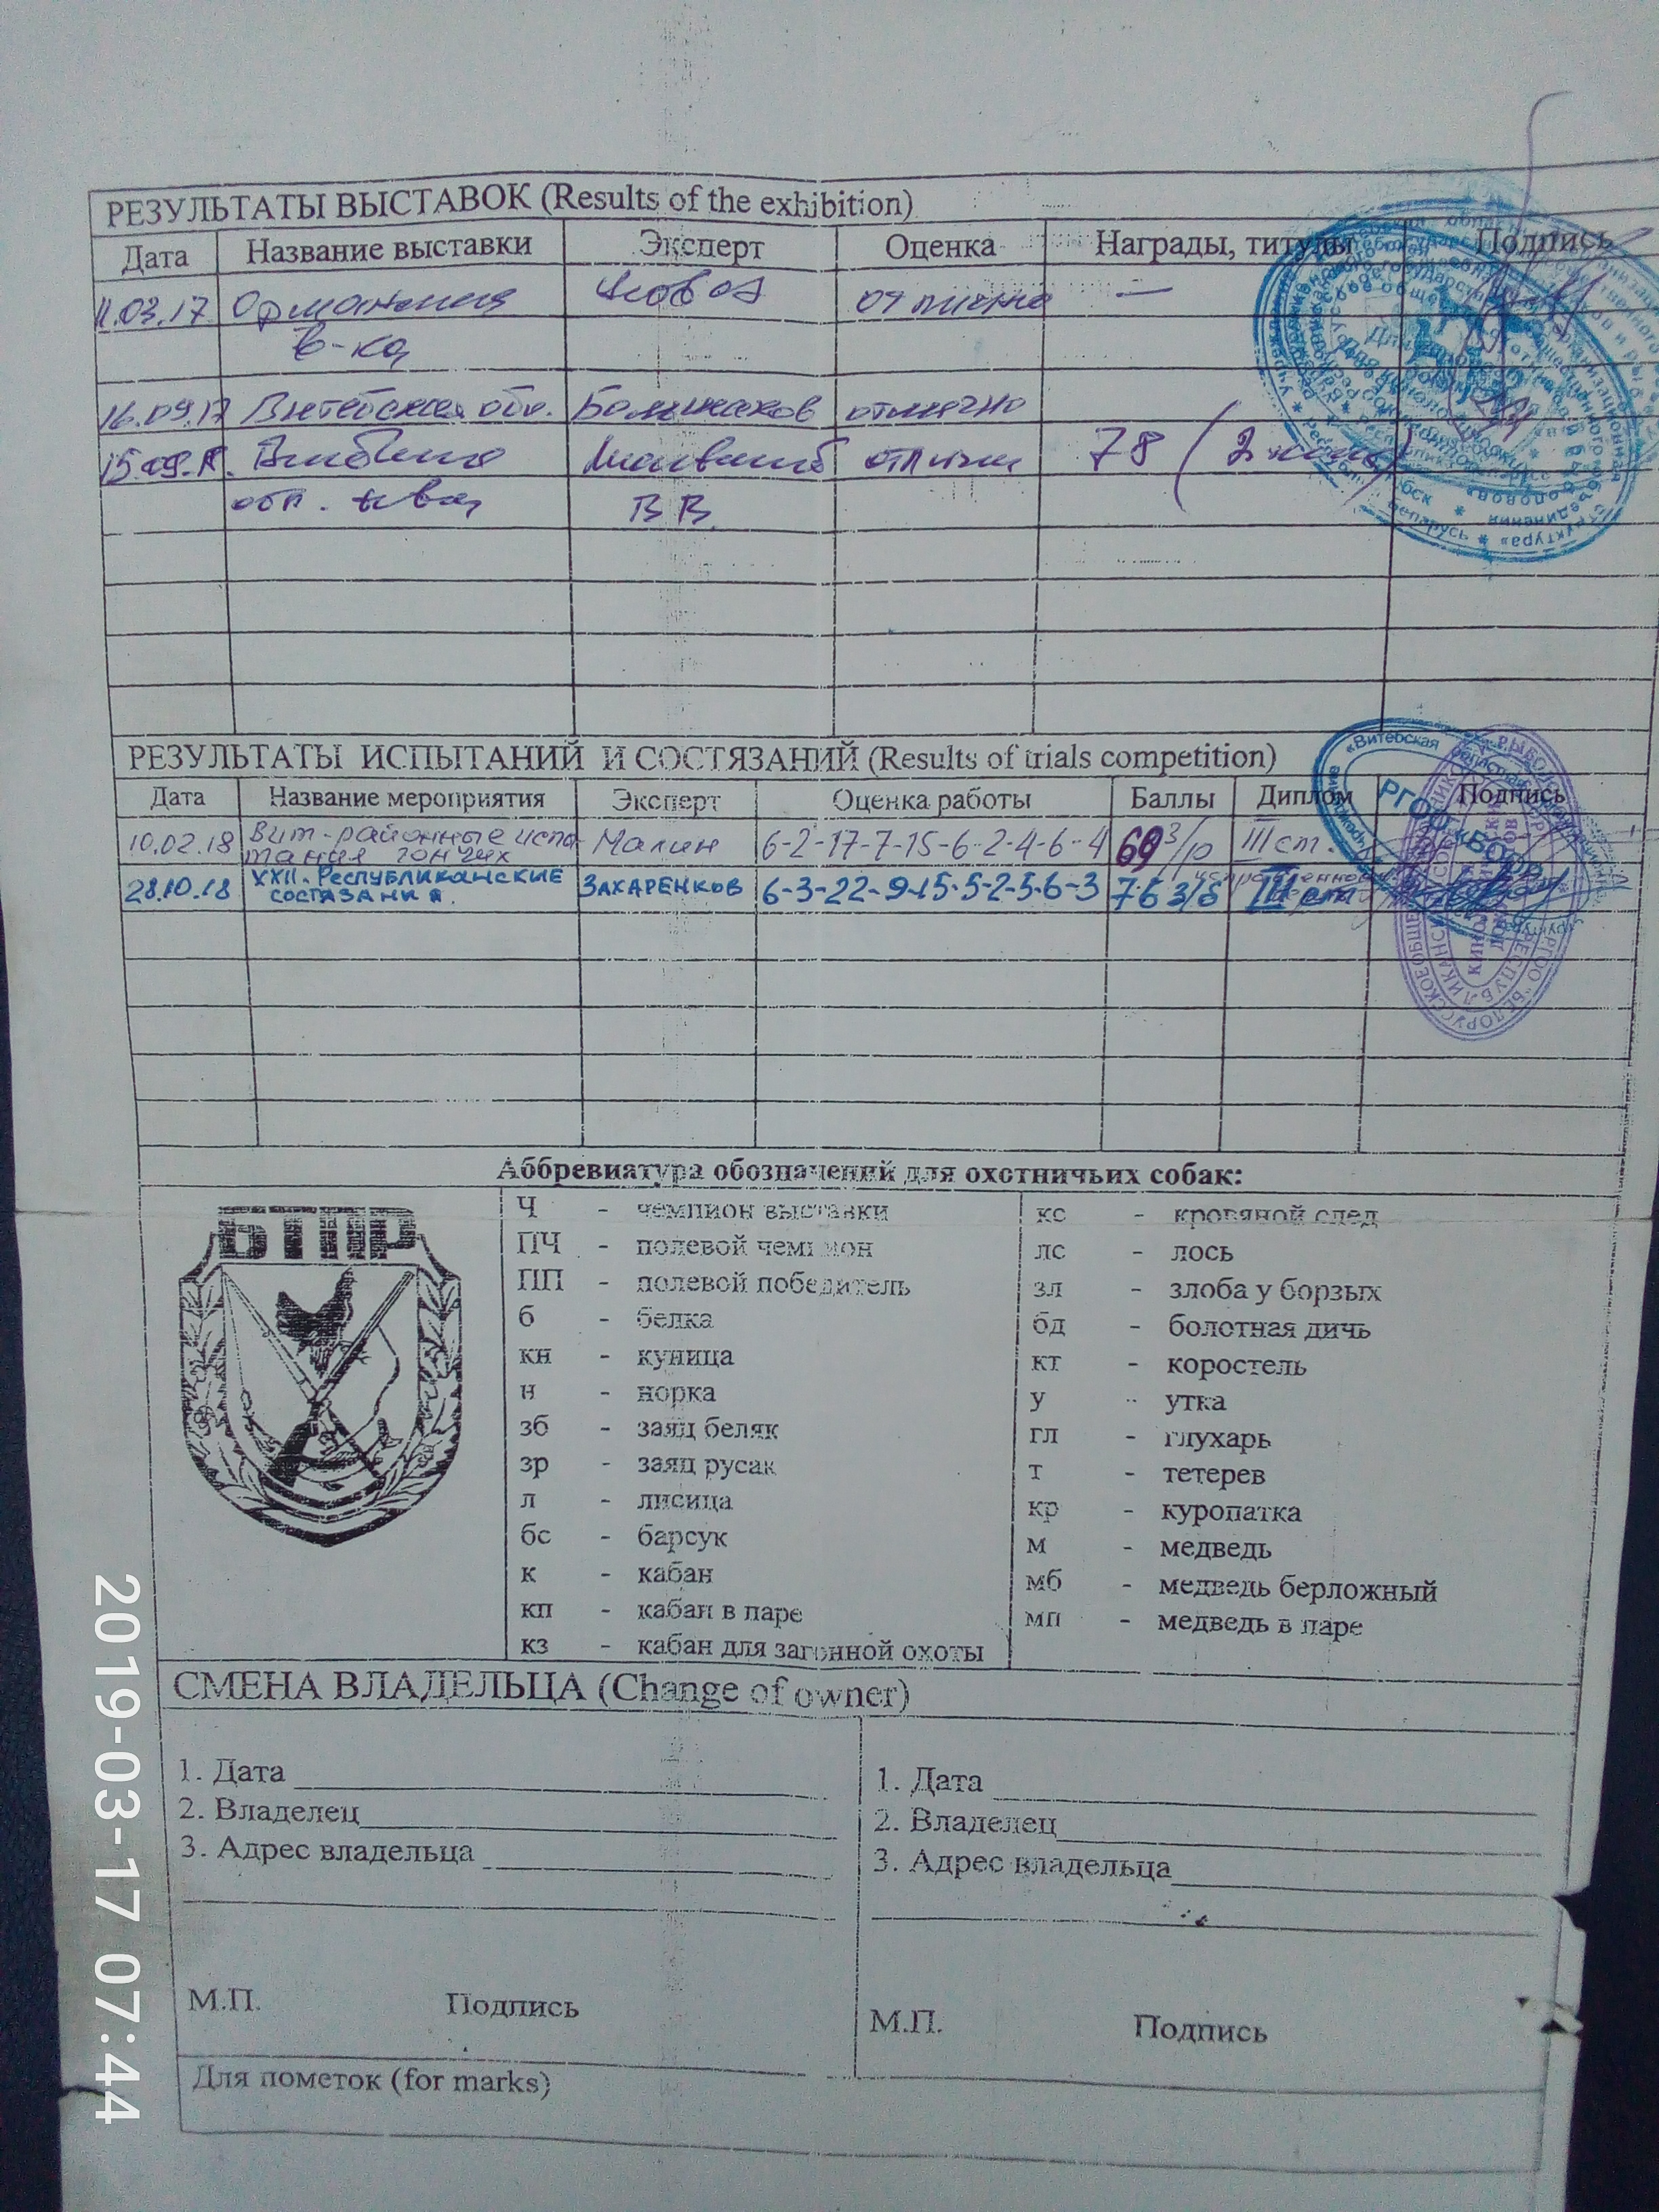 РЕЗУЛЬТАТЫ ВЫСТАВОК (Results of the exhibition)
Дата Название выставки Эксперт Оценка Награды, титулы Подпись
11.03.17 отлично —
в-ка
16.09.17 Витебская обл. Большаков отлично
15.09. отлично 78 (2
обл. В В
РЕЗУЛЬТАТЫ ИСПЫТАНИЙ И СОСТЯЗАНИЙ (Results of trials competition)
Дата Название мероприятия Эксперт Оценка работы Баллы Диплом Подпись
10.02.18 Вит-районные испы Малин 6-2-17-7-15-6-2-4-6-4 69 з/р III ст.
тания гончих
28.10.18 XXII-Республиканские Захаренков 6-3-22-9-15-5-2-5-6-3 76 з/б III
состязания.
Аббревиатура обозначений для охотничьих собак:
БТПР
Ч - чемпион выставки
ПЧ - полевой чемпион
ПП - полевой победитель
б - белка
кн - куница
н - норка
зб - заяц беляк
зр - заяц русак
л - лисица
бс - барсук
к - кабан
кп - кабан в паре
кз - кабан для загонной охоты
кс - кровяной след
лс - лось
зл - злоба у борзых
бд - болотная дичь
кт - коростель
у - утка
гл - глухарь
т - тетерев
кр - куропатка
м - медведь
мб - медведь берложный
мп - медведь в паре
СМЕНА ВЛАДЕЛЬЦА (Change of owner)
1. Дата
2. Владелец
3. Адрес владельца
М.П. Подпись
1. Дата
2. Владелец
3. Адрес владельца
М.П. Подпись
Для пометок (for marks)
2019-03-17 07:44